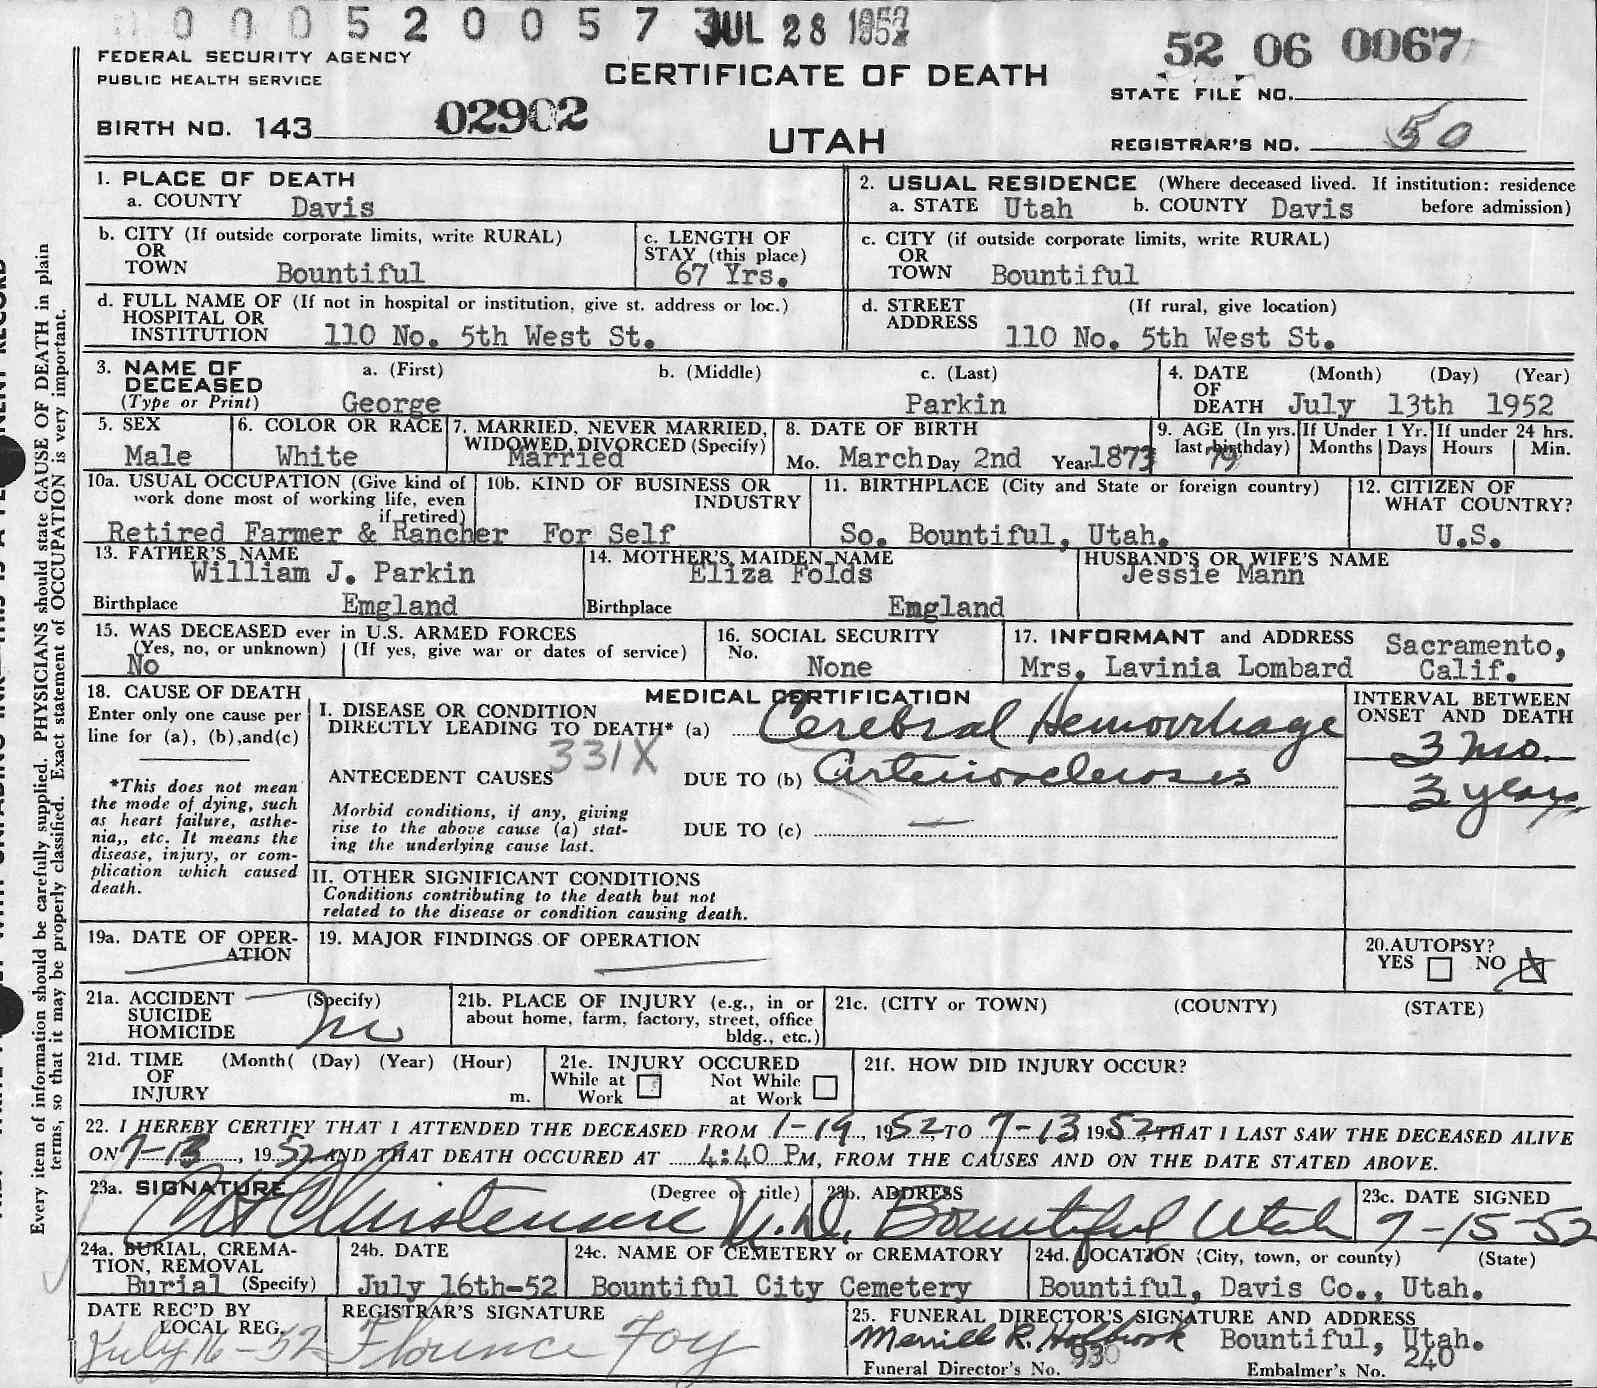 0 0 0 5 2 0 0 5 7 JUL 28 1952
52 06 0067
FEDERAL SECURITY AGENCY
PUBLIC HEALTH SERVICE
CERTIFICATE OF DEATH
STATE FILE NO.
BIRTH NO. 143 02902
UTAH
REGISTRAR'S NO. 50
1. PLACE OF DEATH
a. COUNTY Davis
2. USUAL RESIDENCE (Where deceased lived. If institution: residence
a. STATE Utah b. COUNTY Davis before admission)
b. CITY (If outside corporate limits, write RURAL)
OR
TOWN Bountiful
c. LENGTH OF
STAY (this place)
67 Yrs.
c. CITY (if outside corporate limits, write RURAL)
OR
TOWN Bountiful
d. FULL NAME OF (If not in hospital or institution, give st. address or loc.)
HOSPITAL OR
INSTITUTION 110 No. 5th West St.
d. STREET (If rural, give location)
ADDRESS
110 No. 5th West St.
3. NAME OF a. (First) b. (Middle) c. (Last)
DECEASED
(Type or Print) George Parkin
4. DATE (Month) (Day) (Year)
OF
DEATH July 13th 1952
5. SEX
Male
6. COLOR OR RACE
White
7. MARRIED, NEVER MARRIED,
WIDOWED, DIVORCED (Specify)
Married
8. DATE OF BIRTH
Mo. March Day 2nd Year 1873
9. AGE (In yrs.
last birthday)
79
If Under 1 Yr.
Months Days
If under 24 hrs.
Hours Min.
10a. USUAL OCCUPATION (Give kind of
work done most of working life, even
if retired)
Retired Farmer & Rancher
10b. KIND OF BUSINESS OR
INDUSTRY
For Self
11. BIRTHPLACE (City and State or foreign country)
So. Bountiful, Utah.
12. CITIZEN OF
WHAT COUNTRY?
U.S.
13. FATHER'S NAME
William J. Parkin
Birthplace Emgland
14. MOTHER'S MAIDEN NAME
Eliza Folds
Birthplace Emgland
HUSBAND'S OR WIFE'S NAME
Jessie Mann
15. WAS DECEASED ever in U.S. ARMED FORCES
(Yes, no, or unknown) (If yes, give war or dates of service)
No
16. SOCIAL SECURITY
No.
None
17. INFORMANT and ADDRESS Sacramento,
Mrs. Lavinia Lombard Calif.
18. CAUSE OF DEATH
Enter only one cause per
line for (a), (b),and(c)
*This does not mean
the mode of dying, such
as heart failure, asthe-
nia,, etc. It means the
disease, injury, or com-
plication which caused
death.
MEDICAL CERTIFICATION
I. DISEASE OR CONDITION
DIRECTLY LEADING TO DEATH* (a) Cerebral Hemorrhage
331X
ANTECEDENT CAUSES DUE TO (b) Arteriosclerosis
Morbid conditions, if any, giving
rise to the above cause (a) stat-
ing the underlying cause last.
DUE TO (c) —
INTERVAL BETWEEN
ONSET AND DEATH
3 mo.
3 years
II. OTHER SIGNIFICANT CONDITIONS
Conditions contributing to the death but not
related to the disease or condition causing death.
19a. DATE OF OPER-
ATION
19. MAJOR FINDINGS OF OPERATION
20.AUTOPSY?
YES NO X
21a. ACCIDENT (Specify)
SUICIDE
HOMICIDE
no
21b. PLACE OF INJURY (e.g., in or
about home, farm, factory, street, office
bldg., etc.)
21c. (CITY or TOWN) (COUNTY) (STATE)
21d. TIME (Month( (Day) (Year) (Hour)
OF
INJURY m.
21e. INJURY OCCURED
While at Not While
Work at Work
21f. HOW DID INJURY OCCUR?
22. I HEREBY CERTIFY THAT I ATTENDED THE DECEASED FROM 1-19, 1952, TO 7-13, 1952, THAT I LAST SAW THE DECEASED ALIVE
ON 7-13, 1952 AND THAT DEATH OCCURED AT 4:40 Pm, FROM THE CAUSES AND ON THE DATE STATED ABOVE.
23a. SIGNATURE (Degree or title)
Christensen M.D.
23b. ADDRESS
Bountiful Utah
23c. DATE SIGNED
7-15-52
24a. BURIAL, CREMA-
TION, REMOVAL
Burial (Specify)
24b. DATE
July 16th-52
24c. NAME OF CEMETERY or CREMATORY
Bountiful City Cemetery
24d. LOCATION (City, town, or county) (State)
Bountiful, Davis Co., Utah.
DATE REC'D BY
LOCAL REG.
July 16-52
REGISTRAR'S SIGNATURE
Florence Foy
25. FUNERAL DIRECTOR'S SIGNATURE AND ADDRESS
Merrill R. Holbrook Bountiful, Utah.
Funeral Director's No. 930 Embalmer's No. 240
Every item of information should be carefully supplied. PHYSICIANS should state CAUSE OF DEATH in plain
terms, so that it may be properly classified. Exact statement of OCCUPATION is very important.